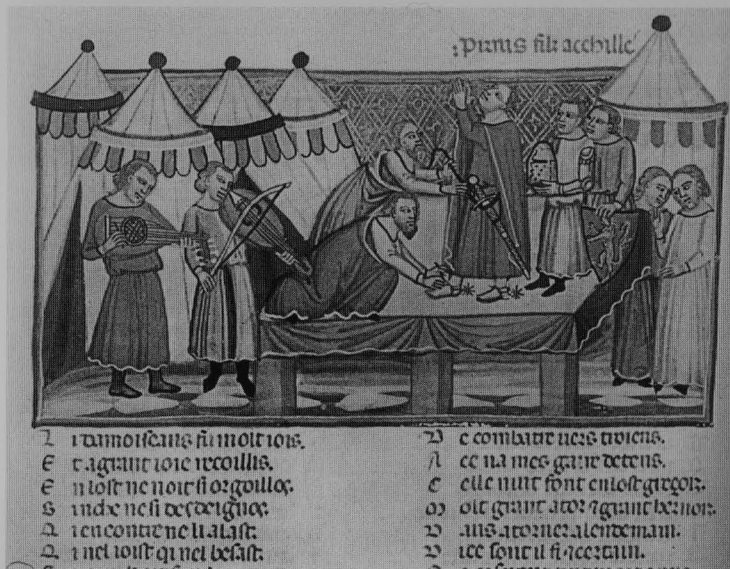 pirrus filz acchille
L i damoiseaus fu molt iois.
E t a grant ioie recoillis.
E n lost ne noit si orgoillos.
S i riche ne si desdeignos.
Q i encontre ne li alast.
Q i nel ioist qi nel besast.
D e combatre uers troiens.
A ce na mes gaire de tens.
C elle nuit font en lost gregois.
M olt grant ator 7 grant hernois.
atorner a lendemain.
D ice sont il fi 7 certain.